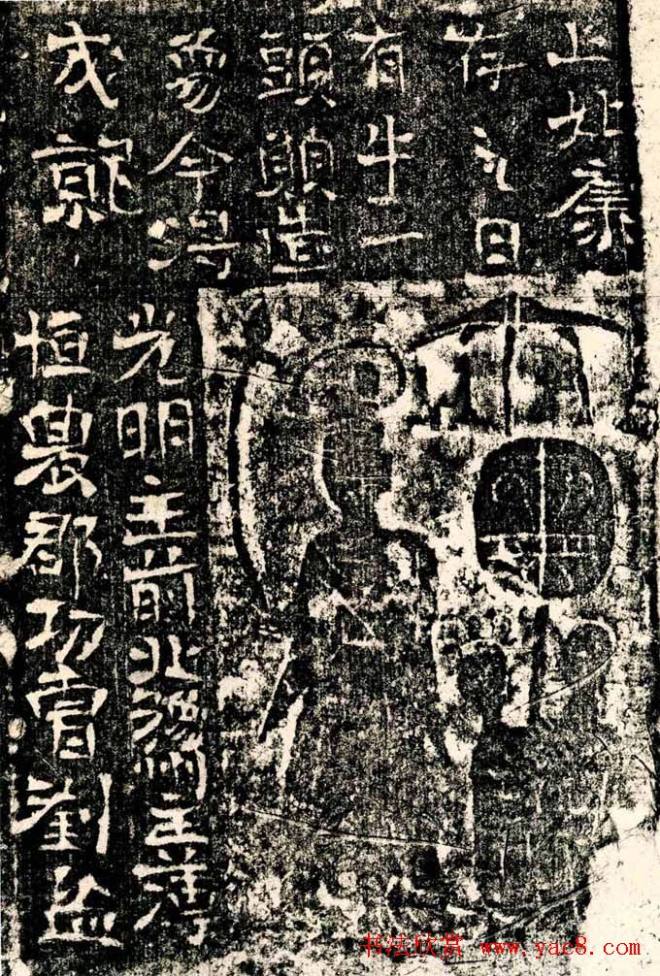 亡妣康
存之日
有牛二
頭願造
像今得
成就
光明主前北豫州主簿
恒農郡功曹劉
书法欣赏 www.yac8.com